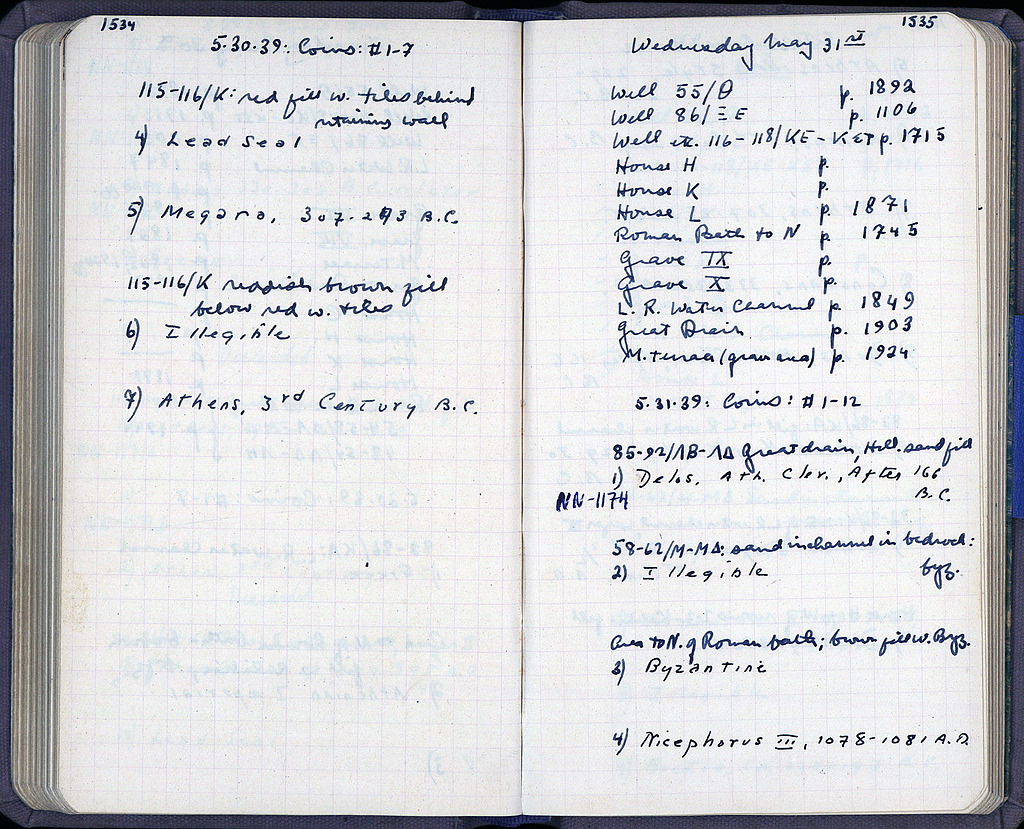 1534
5.30.39: Coins: #1-7
115-116/K: red fill w. tiles behind
retaining wall
4) Lead Seal
5) Megara, 307-243 B.C.
115-116/K reddish brown fill
below red w. tiles
6) Illegible
7) Athens, 3rd Century B.C.
1535
Wednesday May 31st
Well 55/Θ p. 1892
Well 86/ΞE p. 1106
Well at 116-118/KE-KΣΤ p. 1715
House H p.
House K p.
House L p. 1871
Roman Bath to N p. 1745
Grave IX p.
Grave X p.
L. R. Water Channel p. 1849
Great Drain p. 1903
M. terrace (grave area) p. 1924
5.31.39: Coins: #1-12
85-92/ΛB-ΛΔ Great drain, Hell. sand fill
1) Delos, Ath. Cler., After 166
B.C.
NN-1174
58-62/M-MΔ: sand in channel in bedrock:
byz.
2) Illegible
Area to N. of Roman bath; brown fill w. Byz.
3) Byzantine
4) Nicephorus III, 1078-1081 A.D.